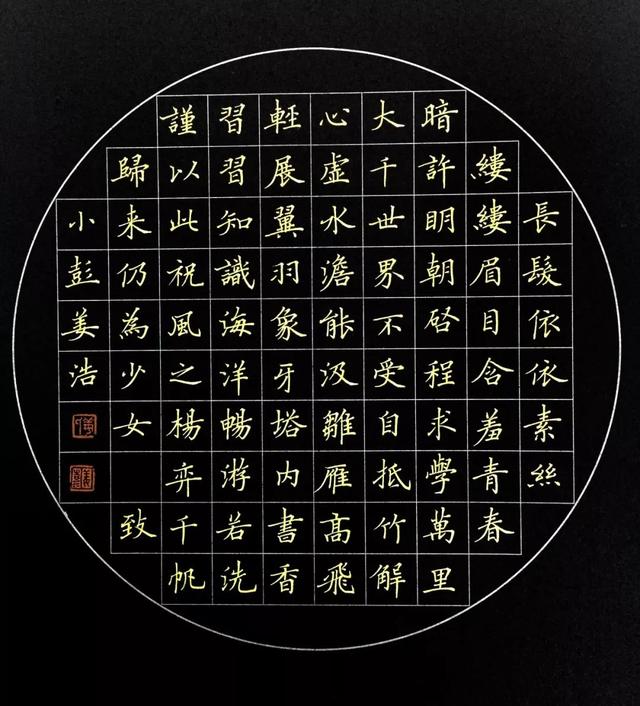 長髮依依素絲
縷縷眉目含羞青春
暗許明朝启程求學萬里
大千世界不受自抵竹解
心虛水澹能汲雛雁高飛
輕展翼羽象牙塔内書香
習習知識海洋暢游若洗
謹以此祝風之楊弈千帆
歸来仍為少女 致
小彭姜浩